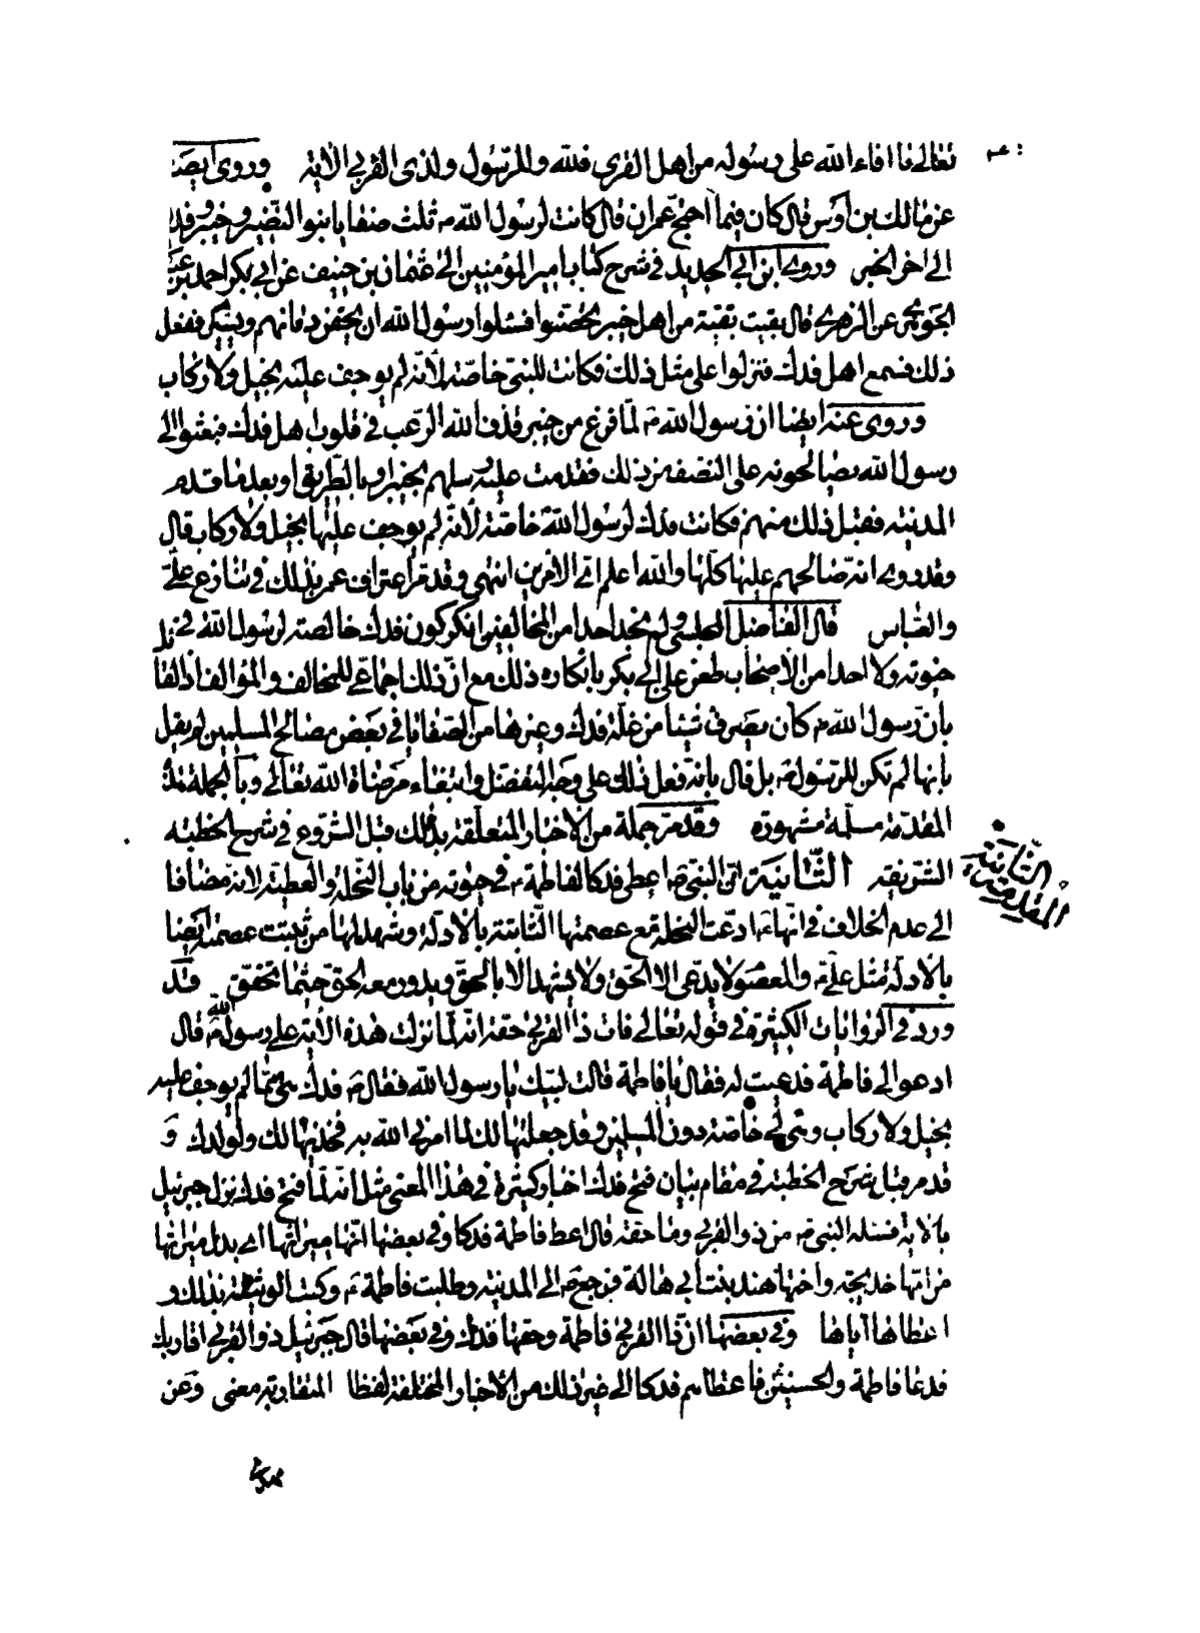 تعالى ما افاء الله على رسوله من اهل القرى فلله وللرسول ولذى القربى الآية وروى ايضا
عن مالك بن اوس قال كان فيما احتج عمر ان قال كانت لرسول الله ص ثلث صفايا بنو النضير وخيبر وفدك
الى اخر الخبر وروى ابن ابى الحديد فى شرح كتاب امير المؤمنين الى عثمان بن حنيف عن ابى بكر احمد بن عبد
الجوهرى عن الزهرى قال بقيت بقية من اهل خيبر تحصنوا فسئلوا رسول الله ان يحقن دمائهم ويسيرهم ففعل
ذلك فسمع اهل فدك فنزلوا على مثل ذلك فكانت للنبى خاصة لانه لم يوجف عليه بخيل ولا ركاب
وروى عنه ايضا ان رسول الله ص لما فرغ من خيبر قذف الله الرعب فى قلوب اهل فدك فبعثوا الى
رسول الله يصالحونه على النصف من ذلك فقدمت عليه رسلهم بخيبر او بالطريق او بعد ما قدم
المدينة فقبل ذلك منهم فكانت فدك لرسول الله خاصة لانه لم يوجف عليها بخيل ولا ركاب قال
وقد روى انه صالحهم عليها كلها والله اعلم اى الامرين انتهى وقد مر اعتراف عمر بذلك فى تنازع على
والعباس قال الفاضل المجلسى ولم نجد احدا من المخالفين انكر كون فدك خالصة لرسول الله فى
حيوته ولا احدا من الاصحاب طعن على ابى بكر بانكاره ذلك مع ان ذلك اجماعى للمخالف والمؤالف
بان رسول الله ص كان يصرف شيئا من غلة فدك وغيرها من الصفايا فى بعض مصالح المسلمين لم يقل
بانها لم تكن للرسول ص بل قال بانه فعل ذلك على وجه التفضل وابتغاء مرضاة الله تعالى وبالجملة هذه
المقدمة مسلمة مشهورة وقد مر جملة من الاخبار المتعلقة بذلك قبل الشروع فى شرح الخطبة
المقدمة الثانية
الشريفة الثانية ان النبى ص اعطى فدكا لفاطمة ع فى حيوته من باب النحلة والعطية لانه مضافا
الى عدم الخلاف فى انها ع ادعت النحلة مع عصمتها الثابتة بالادلة وشهد لها من ثبتت عصمته ايضا
بالادلة مثل على ع والمعصوم لا يدعى الا الحق ولا يشهد الا بالحق ويدور معه الحق حيثما تحقق وقد
ورد فى الروايات الكثيرة فى قوله تعالى فات ذا القربى حقه انه لما نزلت هذه الآية على رسول الله ص قال
ادعوا لى فاطمة فدعيت له فقال يا فاطمة قالت لبيك يا رسول الله فقال ص فدك هى مما لم يوجف عليه
بخيل ولا ركاب وهى لى خاصة دون المسلمين وقد جعلتها لك لما امرنى الله به فخذيها لك ولولدك و
قد مر قبل شرح الخطبة فى مقام بيان فتح فدك اخبار كثيرة فى هذا المعنى مثل انه لما فتح فدك نزل جبرئيل
بالاية فسئله النبى ص من ذو القربى وما حقه قال اعط فاطمة فدكا وفى بعضها انها ميراثها اى بدل ميراثها
من امها خديجة واختها هند بنت ابى هالة فرجع ص الى المدينة وطلبت فاطمة ع وكتب الوثيقة بذلك و
اعطاها اياها وفى بعضها ان ذا القربى فاطمة وحقها فدك وفى بعضها قال جبرئيل ذو القربى اقاربك
فدعا فاطمة والحسنين فاعطاهم فدكا الى غير ذلك من الاخبار المختلفة لفظا المتقاربة معنى وعن